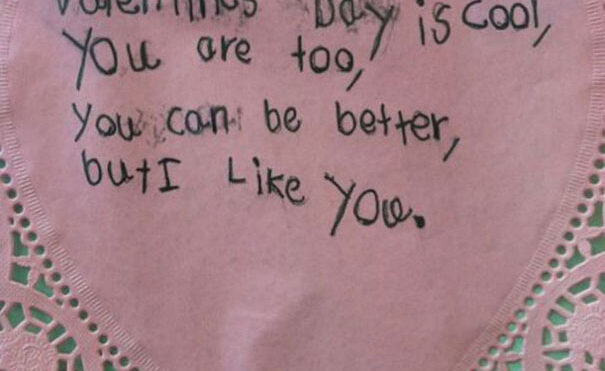 Valentines Day is cool,
You are too,
You can be better,
but I Like You.